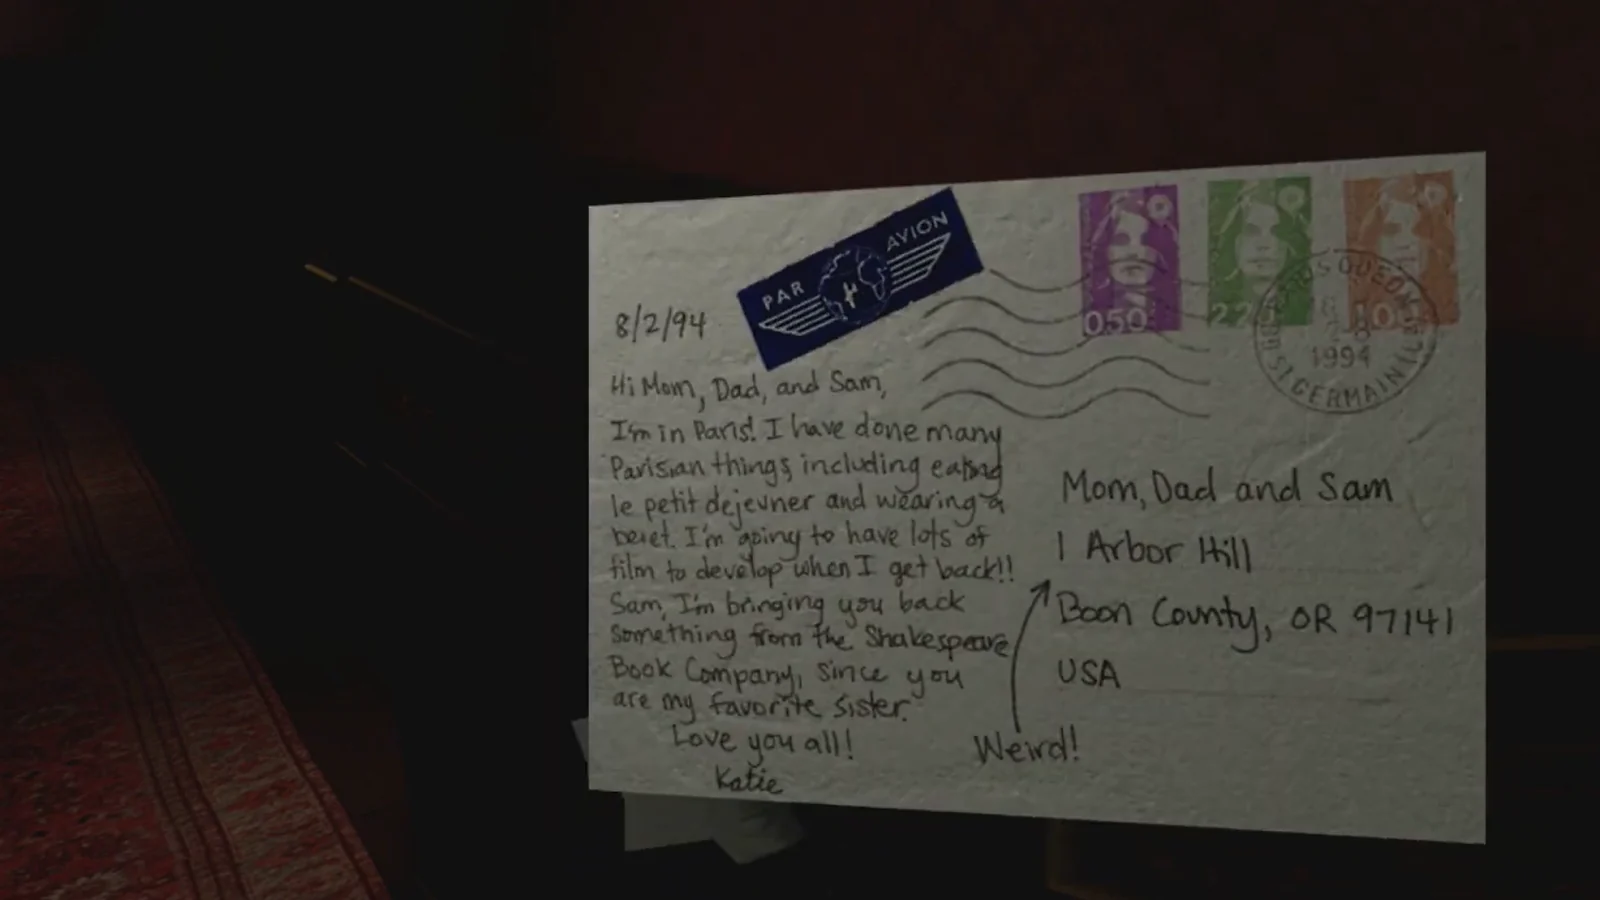 PAR AVION
050
22
1994
ST GERMAIN
8/2/94
Hi Mom, Dad, and Sam,
I'm in Paris! I have done many
Parisian things, including eating
le petit dejeuner and wearing a
beret. I'm going to have lots of
film to develop when I get back!!
Sam, I'm bringing you back
something from the Shakespeare
Book Company, since you
are my favorite sister.
Love you all!
Katie
Mom, Dad and Sam
1 Arbor Hill
Boon County, OR 97141
USA
Weird!